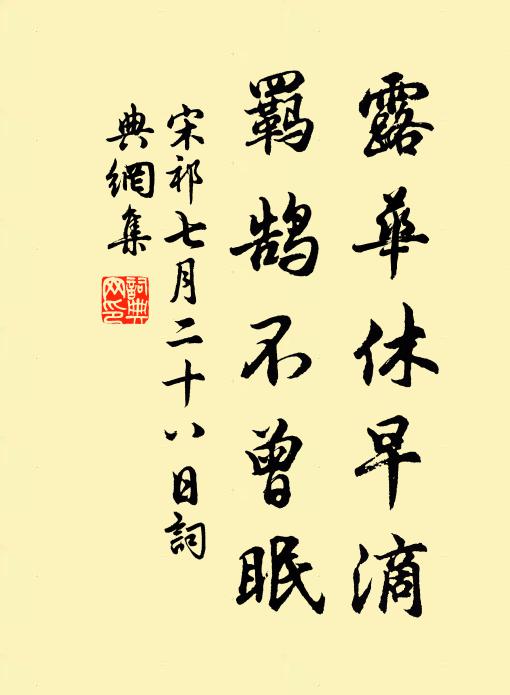 露華休早滴
羈鵠不曾眠
宋祁七月二十八日詞
典網集
詞典網印